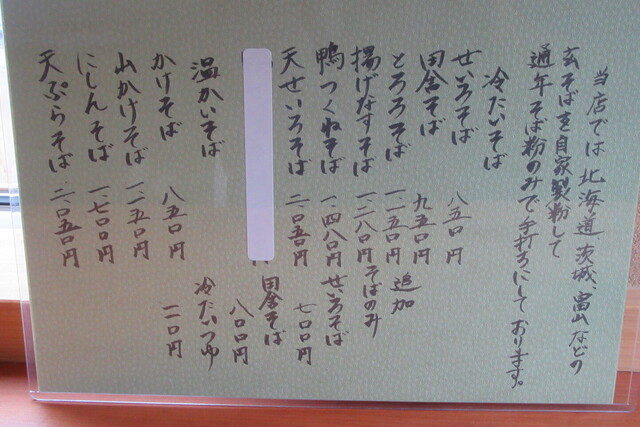 当店では北海道、茨城、富山などの
玄そばを自家製粉して
通年そば粉のみで手打ちにしております。
冷たいそば
せいろそば 八五〇円
田舎そば 九五〇円
とろろそば 一、一五〇円
揚げなすそば 一、二八〇円
鴨つくねそば 一、四八〇円
天せいろそば 二、〇五〇円
追加
そばのみ
せいろそば 七〇〇円
田舎そば 八〇〇円
冷たいつゆ 一一〇円
温かいそば
かけそば 八五〇円
山かけそば 一、一五〇円
にしんそば 一、七〇〇円
天ぷらそば 二、〇五〇円